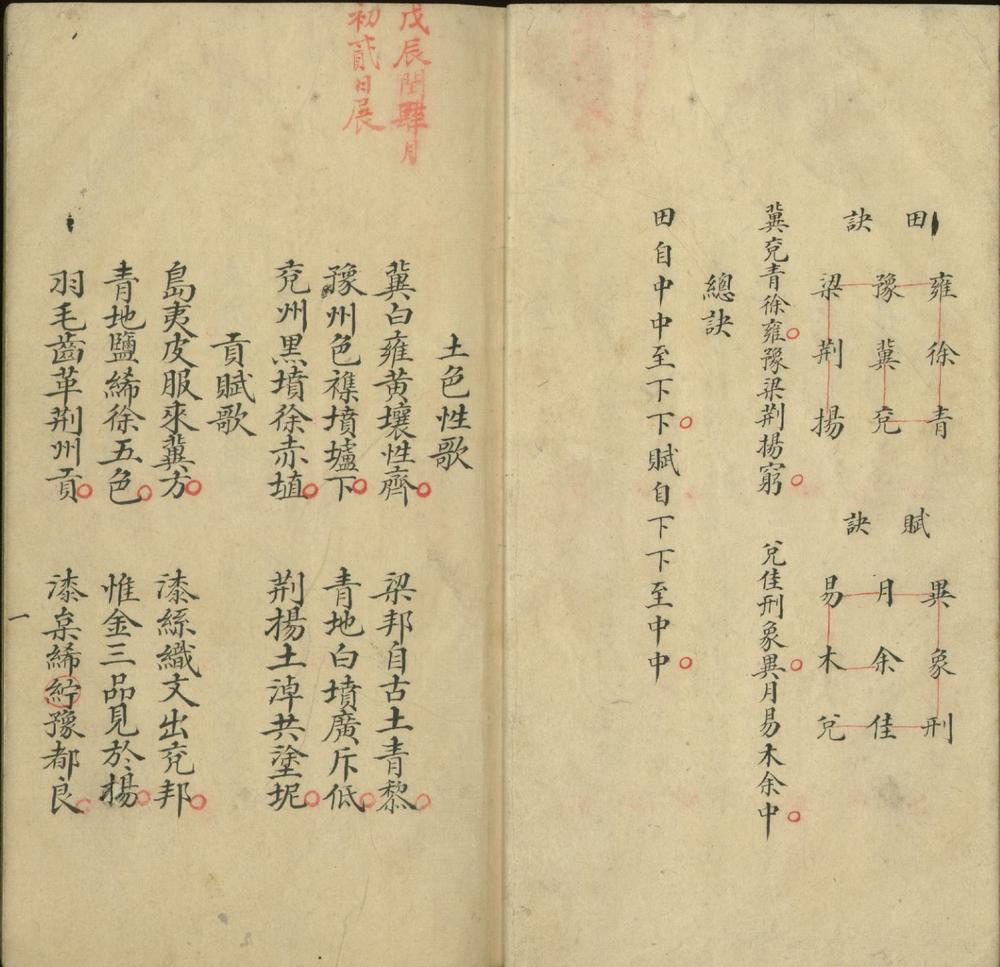 田訣
雍徐青
豫冀兖
梁荆揚
賦訣
異象刑
月余佳
易木兌
冀兖青徐雍豫梁荆揚窮 兌佳刑象異月易木余中
總訣
田自中中至下下賦自下下至中中
戊辰閏肆月
初貳日展
土色性歌
冀白雍黄壤性齊 梁邦自古土青黎
豫州色襍墳壚下 青地白墳廣斥低
兖州黒墳徐赤埴 荆揚土淖共塗坭
貢賦歌
島夷皮服來冀方 漆絲織文出兖邦
青地鹽絺徐五色 惟金三品見於揚
羽毛齒革荆州貢 漆枲絺紵豫都良
一